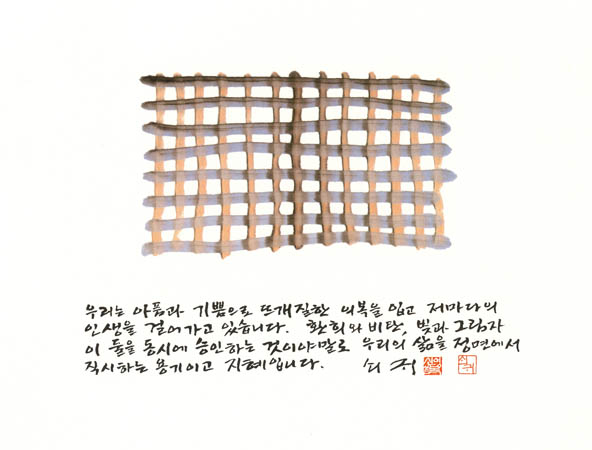 우리는 아픔과 기쁨으로 뜨개질한 의복을 입고 저마다의
인생을 걸어가고 있습니다. 환희와 비탄, 빛과 그림자
이 둘을 동시에 승인하는 것이야말로 우리의 삶을 정면에서
직시하는 용기이고 지혜입니다. 쇠귀